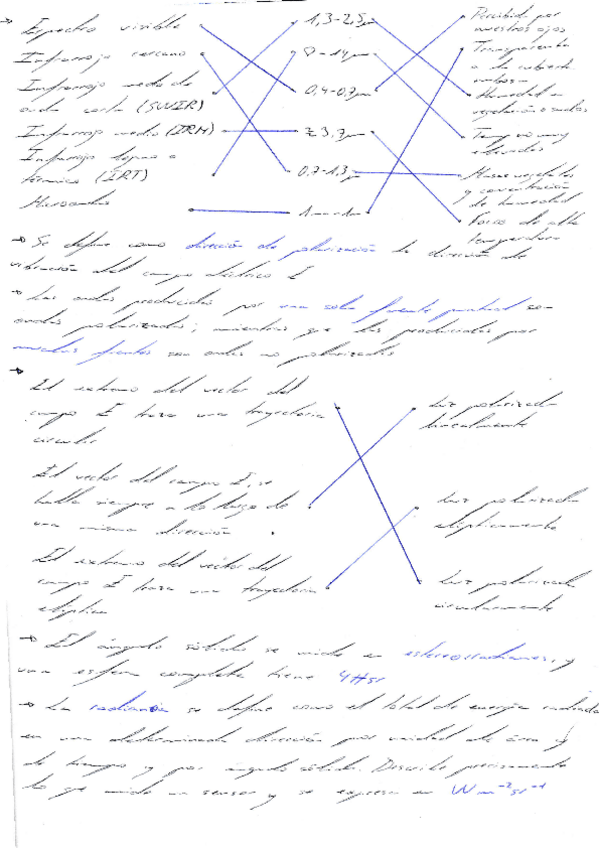 → Espectro visible
Infrarrojo cercano
Infrarrojo medio de
onda corta (SWIR)
Infrarrojo medio (IRM)
Infrarrojo lejano o
térmico (IRT)
Microondas
1,3-2,5μ
8-14μm
0,4-0,7μm
≥ 3,7μm
0,7-1,3μ
Percibida por
nuestros ojos
Transparente
a la cubierta
nubosa
Humedad en
vegetación o suelos
muy
elevadas
Masas vegetales
y concentración
de humedad
Focos de alta
temperatura
→ Se define como dirección de polarización la dirección de
vibración del campo eléctrico E
→ Las ondas producidas por una sola fuente puntual son
ondas polarizadas; mientras que las producidas por
muchas fuentes son ondas no polarizadas
→ El extremo del vector del
campo E traza una trayectoria
circular
El vector del campo E, se
halla siempre a lo largo de
una misma dirección
El extremo del vector del
campo E traza una trayectoria
elíptica
Luz polarizada
linealmente
Luz polarizada
elípticamente
Luz polarizada
circularmente
→ El ángulo sólido se mide en estereorradianes, y
una esfera completa tiene 4πsr
→ La radiancia se define como el total de energía radiada
en una determinada dirección por unidad de área y
de tiempo y por ángulo sólido. Describe precisamente
lo que mide un sensor y se expresa en W m⁻² sr⁻¹